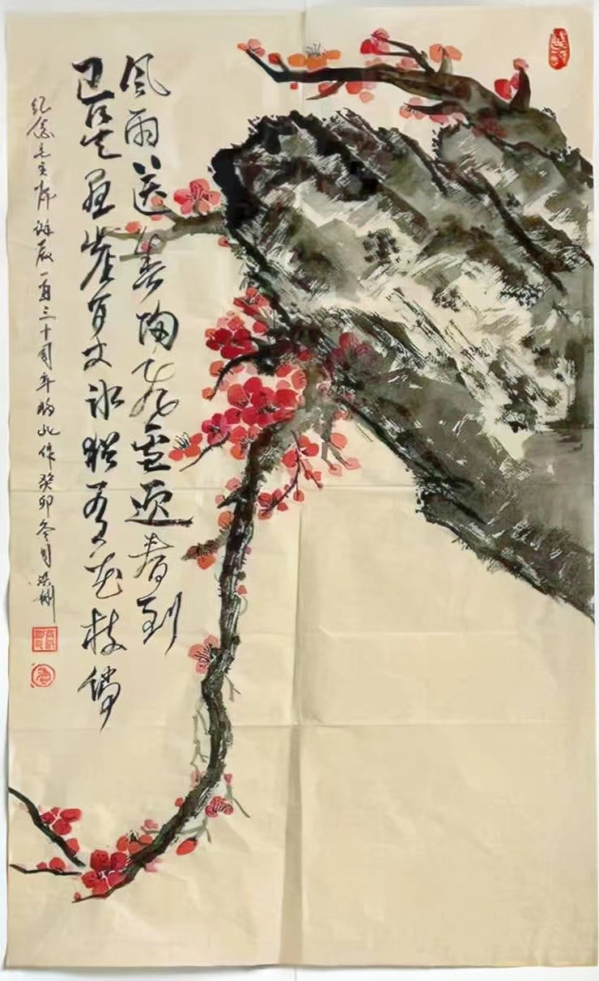 风雨送春归飞雪迎春到
已是悬崖百丈冰犹有花枝俏
纪念毛主席诞辰一百三十周年特此作癸卯冬月